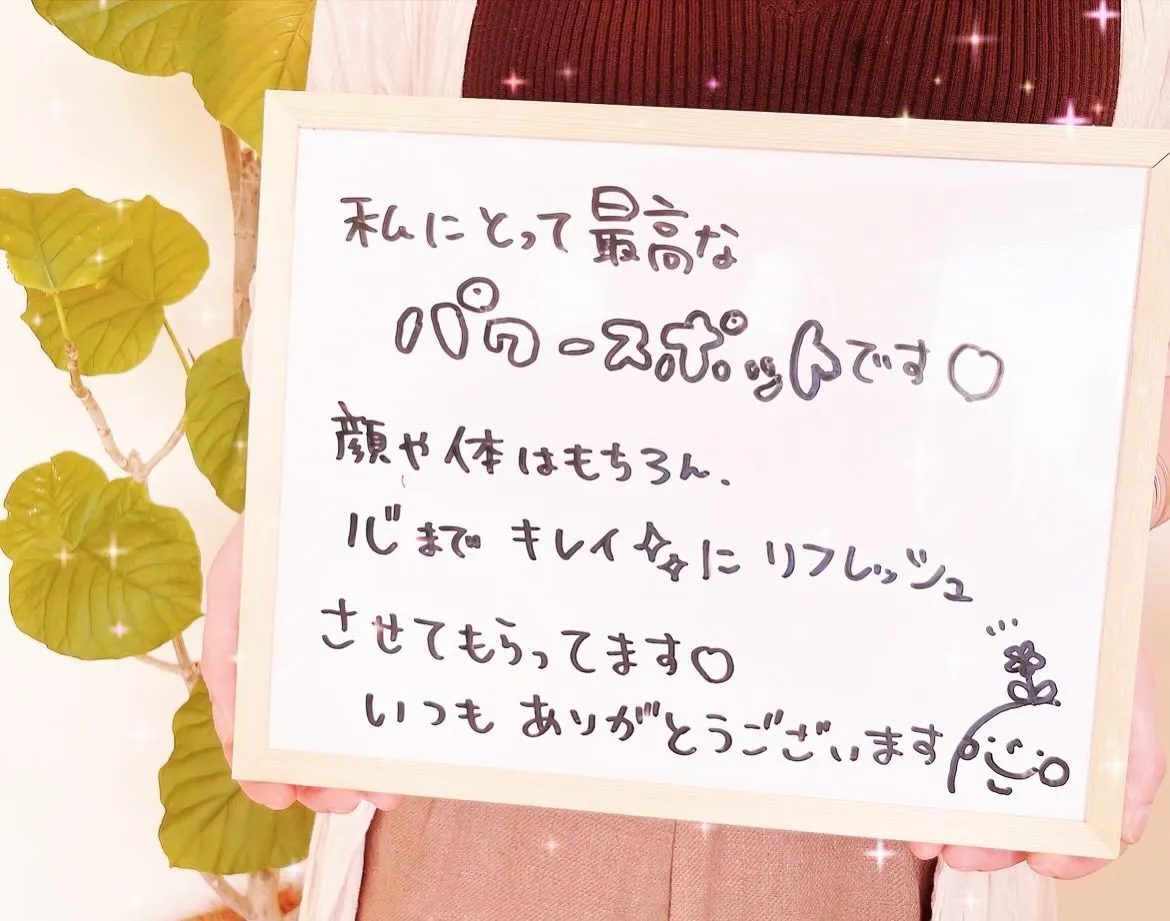 私にとって最高な
パワースポットです♡
顔や体はもちろん、
心までキレイ✨にリフレッシュ
させてもらってます♡
いつもありがとうございます